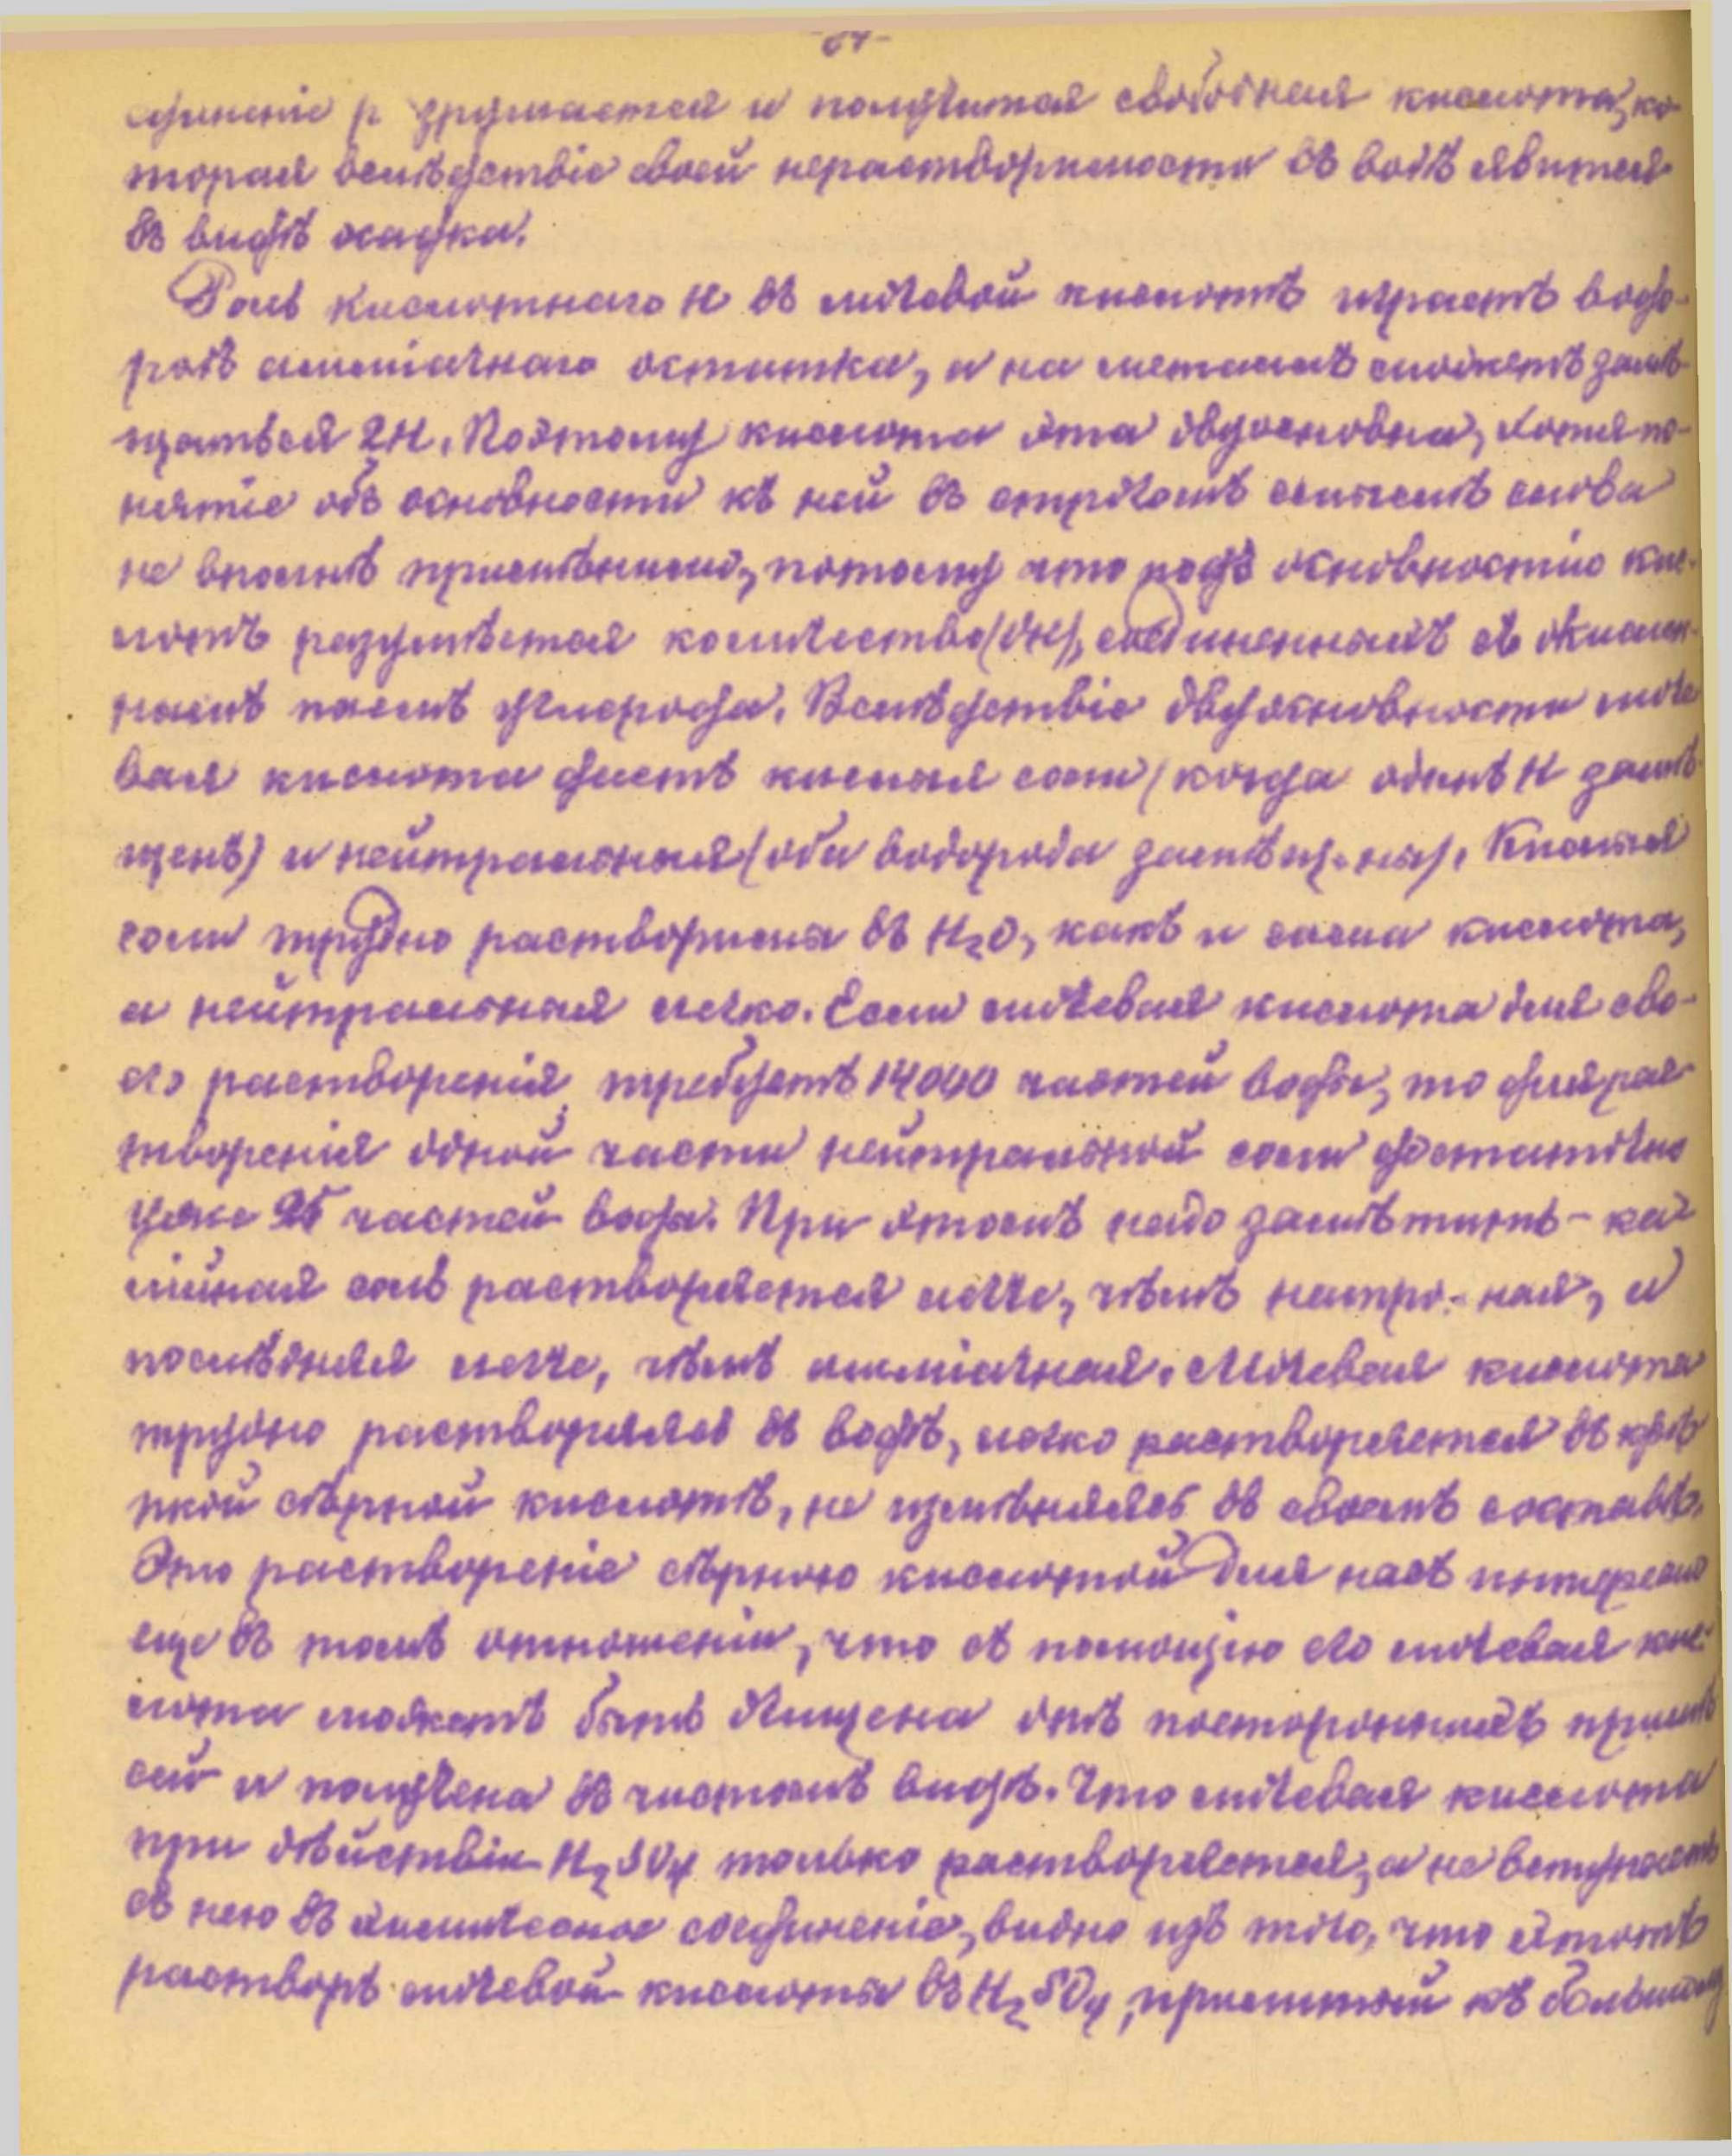 -64-
единеніе р зрушается и получится свободная кислота, ко-
торая вслѣдствіе своей нерастворимости въ водѣ явится
въ видѣ осадка.
Роль кислотнаго H въ мочевой кислотѣ играетъ водо-
родъ амміачнаго остатка, и на металлъ можетъ замѣ-
щаться 2H. Поэтому кислота эта двуосновна, хотя по-
нятіе объ основности къ ней въ строгомъ смыслѣ слова
не вполнѣ примѣнимо, потому что подъ основностію кис-
лотъ разумѣется количество (OH), соединенныхъ съ окислен-
нымъ паемъ углерода. Вслѣдствіе двуосновности моче
вая кислота даетъ кислыя соли (когда одинъ H замѣ-
щенъ) и нейтральныя (оба водорода замѣщ. ны). Кислыя
соли трудно растворимы въ H₂O, какъ и сама кислота,
а нейтральныя легко. Если мочевая кислота для сво-
его растворенія требуетъ 14000 частей воды, то для рас-
творенія одной части нейтральной соли достаточно
уже частей воды. При этомъ надо замѣтить - ка-
лійная соль растворяется легче, чѣмъ натро- ная, и
послѣдняя легче, чѣмъ амміачная. Мочевая кислота
трудно растворяясь въ водѣ, легко растворяется въ крѣ-
пкой сѣрной кислотѣ, не измѣняясь въ своемъ составѣ.
Это раствореніе сѣрною кислотой для насъ интересно
еще въ томъ отношеніи, что съ помощію его мочевая кис-
лота можетъ быть очищена отъ постороннихъ примѣ
сей и получена въ чистомъ видѣ. Что мочевая кислота
при дѣйствіи H₂SO₄ только растворяется, а не вступаетъ
съ нею въ химическое соединеніе, видно изъ того, что этотъ
растворъ мочевой кислоты въ H₂SO₄, прилитый къ большому